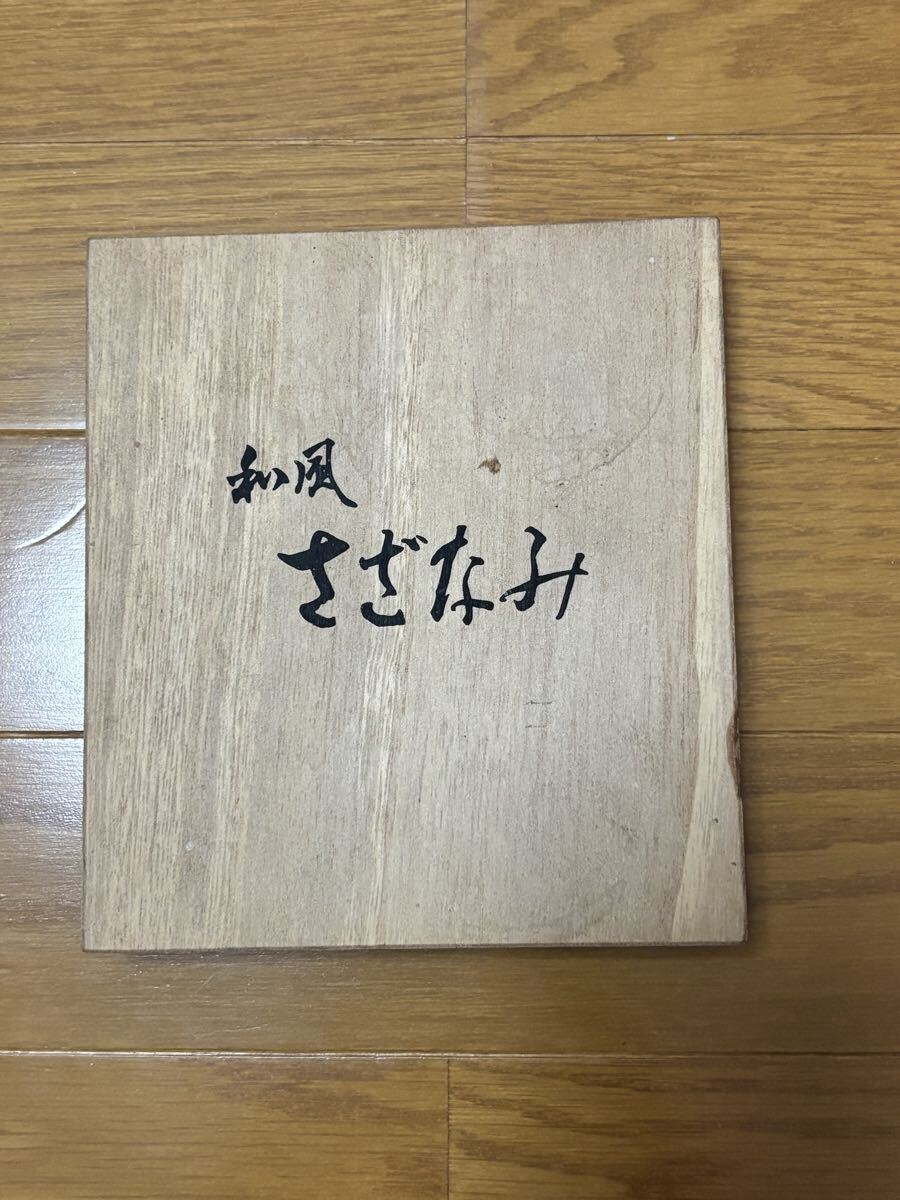 和風
さざなみ